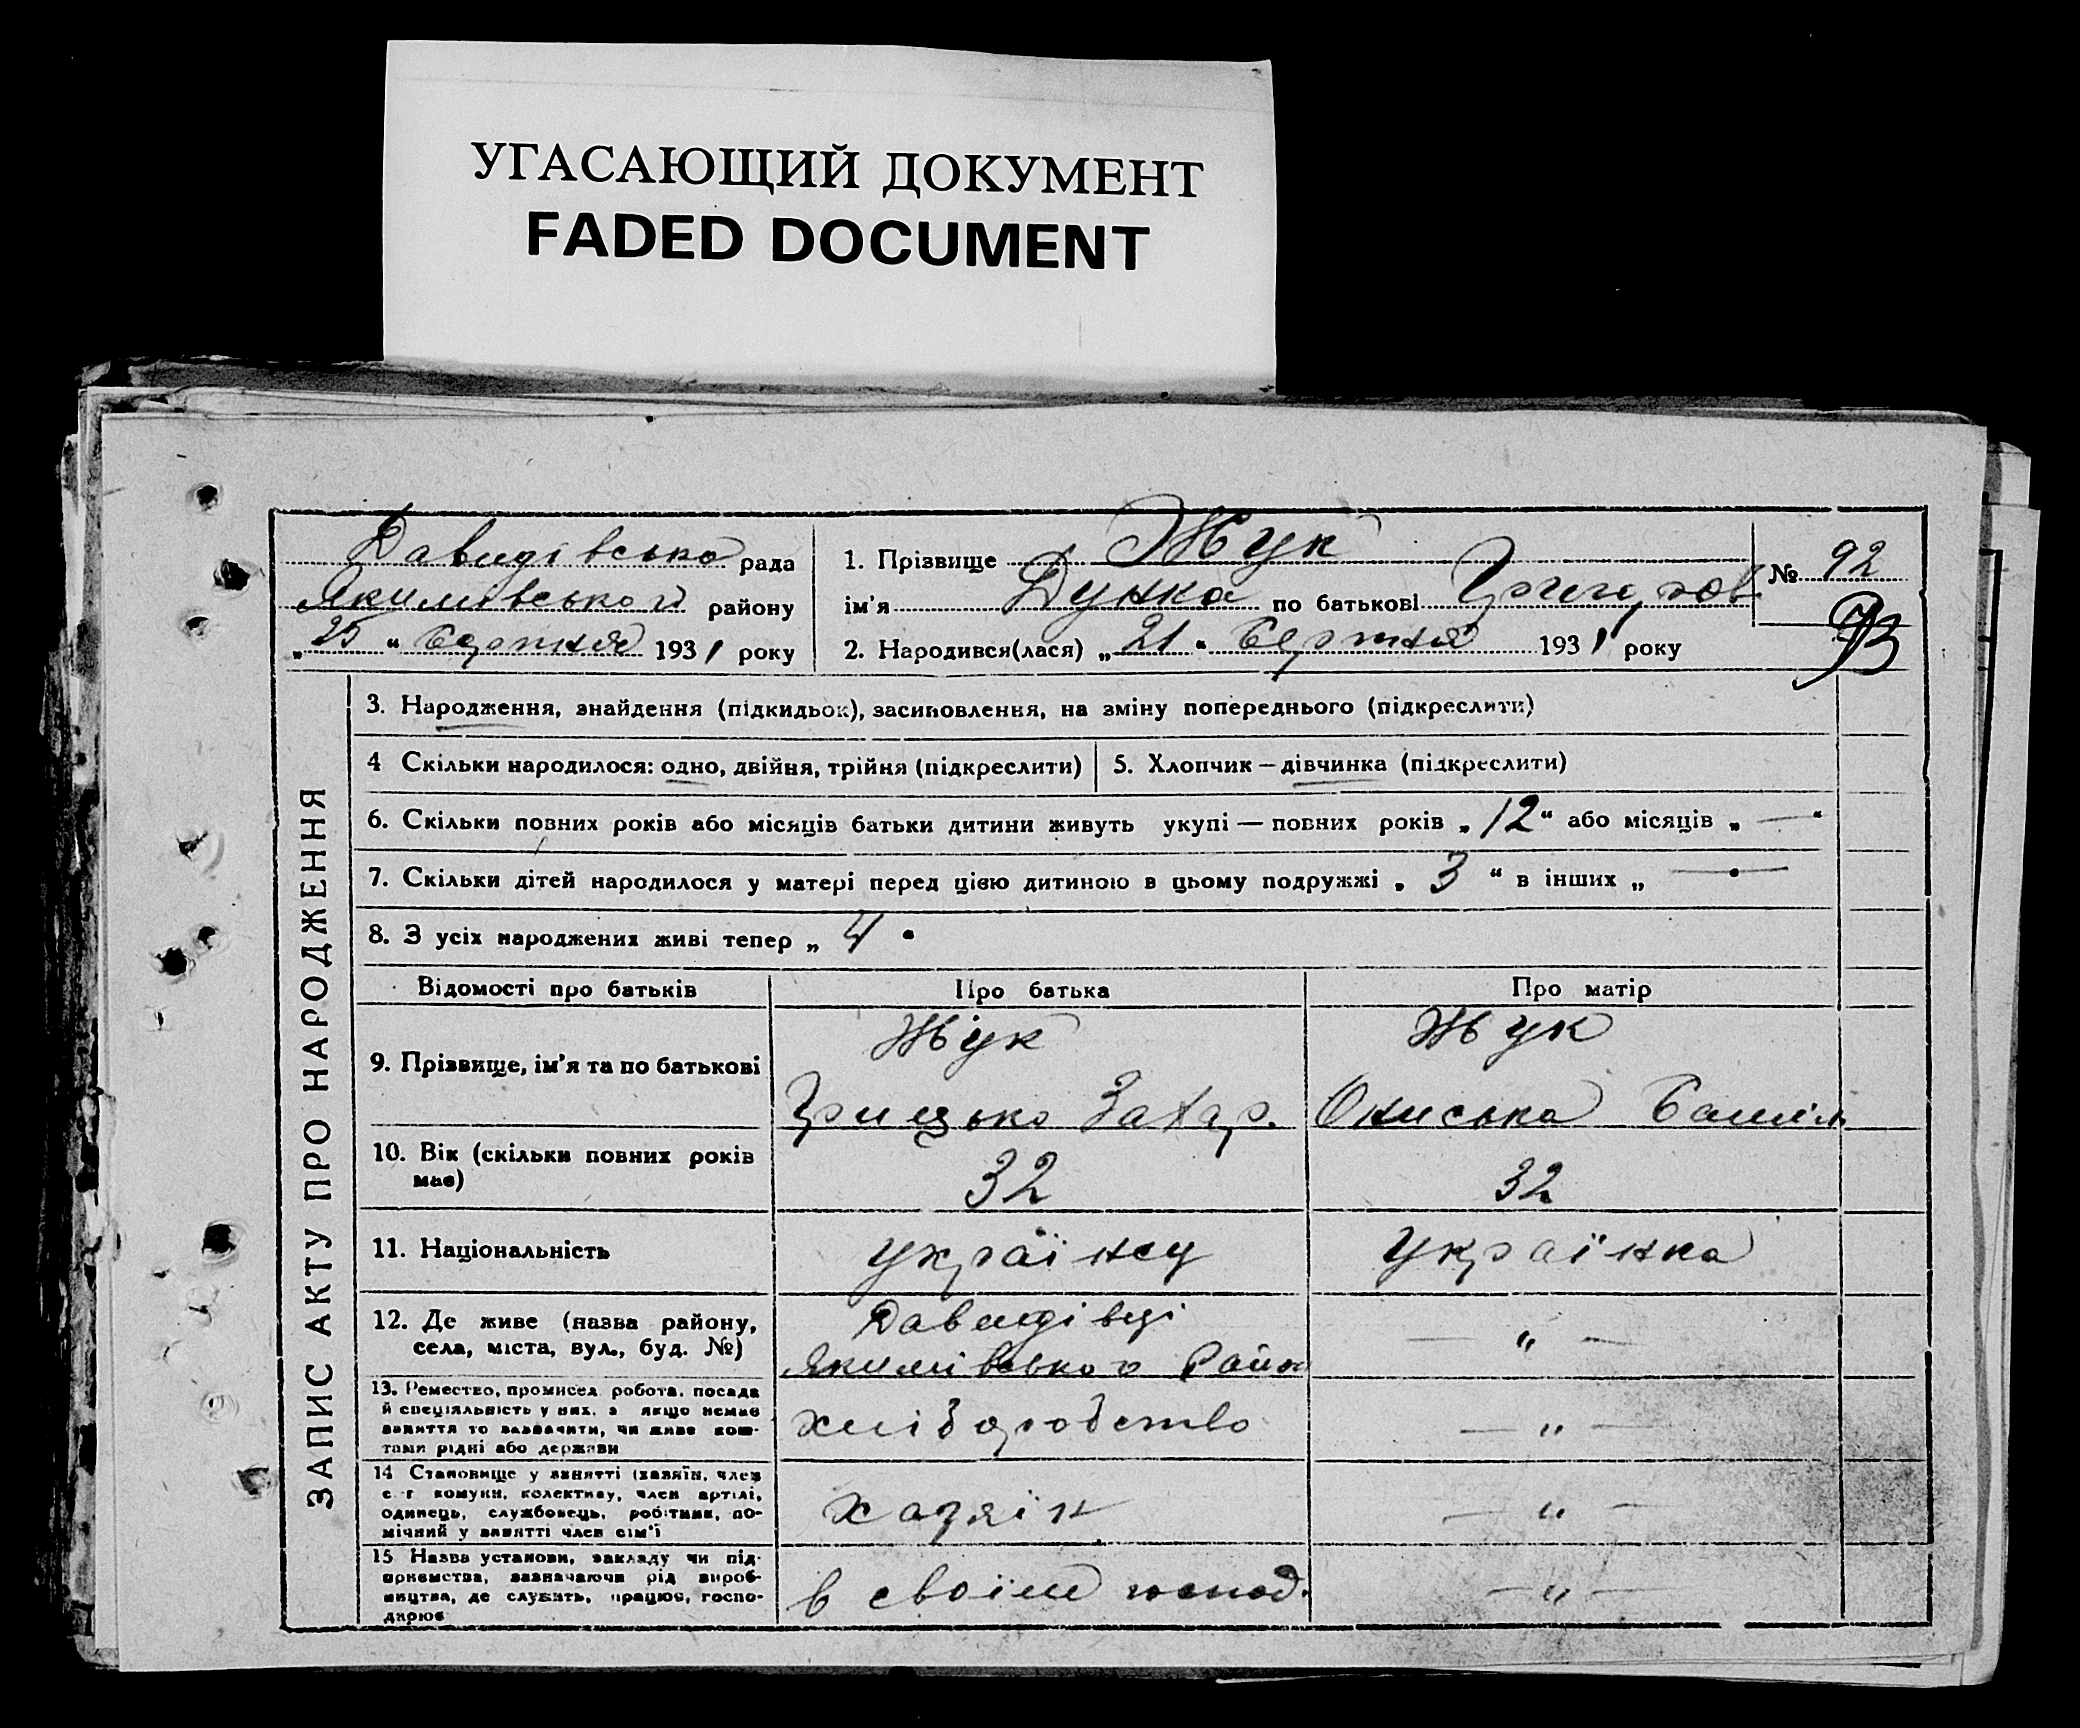 УГАСАЮЩИЙ ДОКУМЕНТ
FADED DOCUMENT
Давидівська рада
Якимівського району
„25“ Березня 1931 року
1. Прізвище Жук
ім'я Дунка по батькові Григоров
2. Народився(лася) „21“ Березня 1931 року
№ 92
93
ЗАПИС АКТУ ПРО НАРОДЖЕННЯ
3. Народження, знайдення (підкидьок), засиновлення, на зміну попереднього (підкреслити)
4 Скільки народилося: одно, двійня, трійня (підкреслити)
5. Хлопчик — дівчинка (підкреслити)
6. Скільки повних років або місяців батьки дитини живуть укупі — повних років „12“ або місяців „—“
7. Скільки дітей народилося у матері перед цією дитиною в цьому подружжі „3“ в інших „ —
8. З усіх народжених живі тепер „4
Відомості про батьків Про батька Про матір
9. Прізвище, ім'я та по батькові
Жук
Грицько Захар.
Жук
Ониська
10. Вік (скільки повних років
має)
32
32
11. Національність
українец
Українка
12. Де живе (назва району,
села, міста, вул., буд. №)
Давидівці
Якимівського Район
— „ —
13. Ремество, промисел, робота, посада
й спеціяльність у них, а якщо немає
заняття то зазначити, чи живе кош-
тами рідні або держави
хліборобство
— „ —
14 Становище у занятті (хазяїн, член
с.-г комуни, колективу, член артілі,
одинець, службовець, робітник, по-
мічний у занятті член сім'ї
хазяін
— „ —
15 Назва установи, закладу чи під-
приємства, зазначаючи рід вироб-
ництва, де служить, працює, госпо-
дарює
в своїм господ.
— „ —